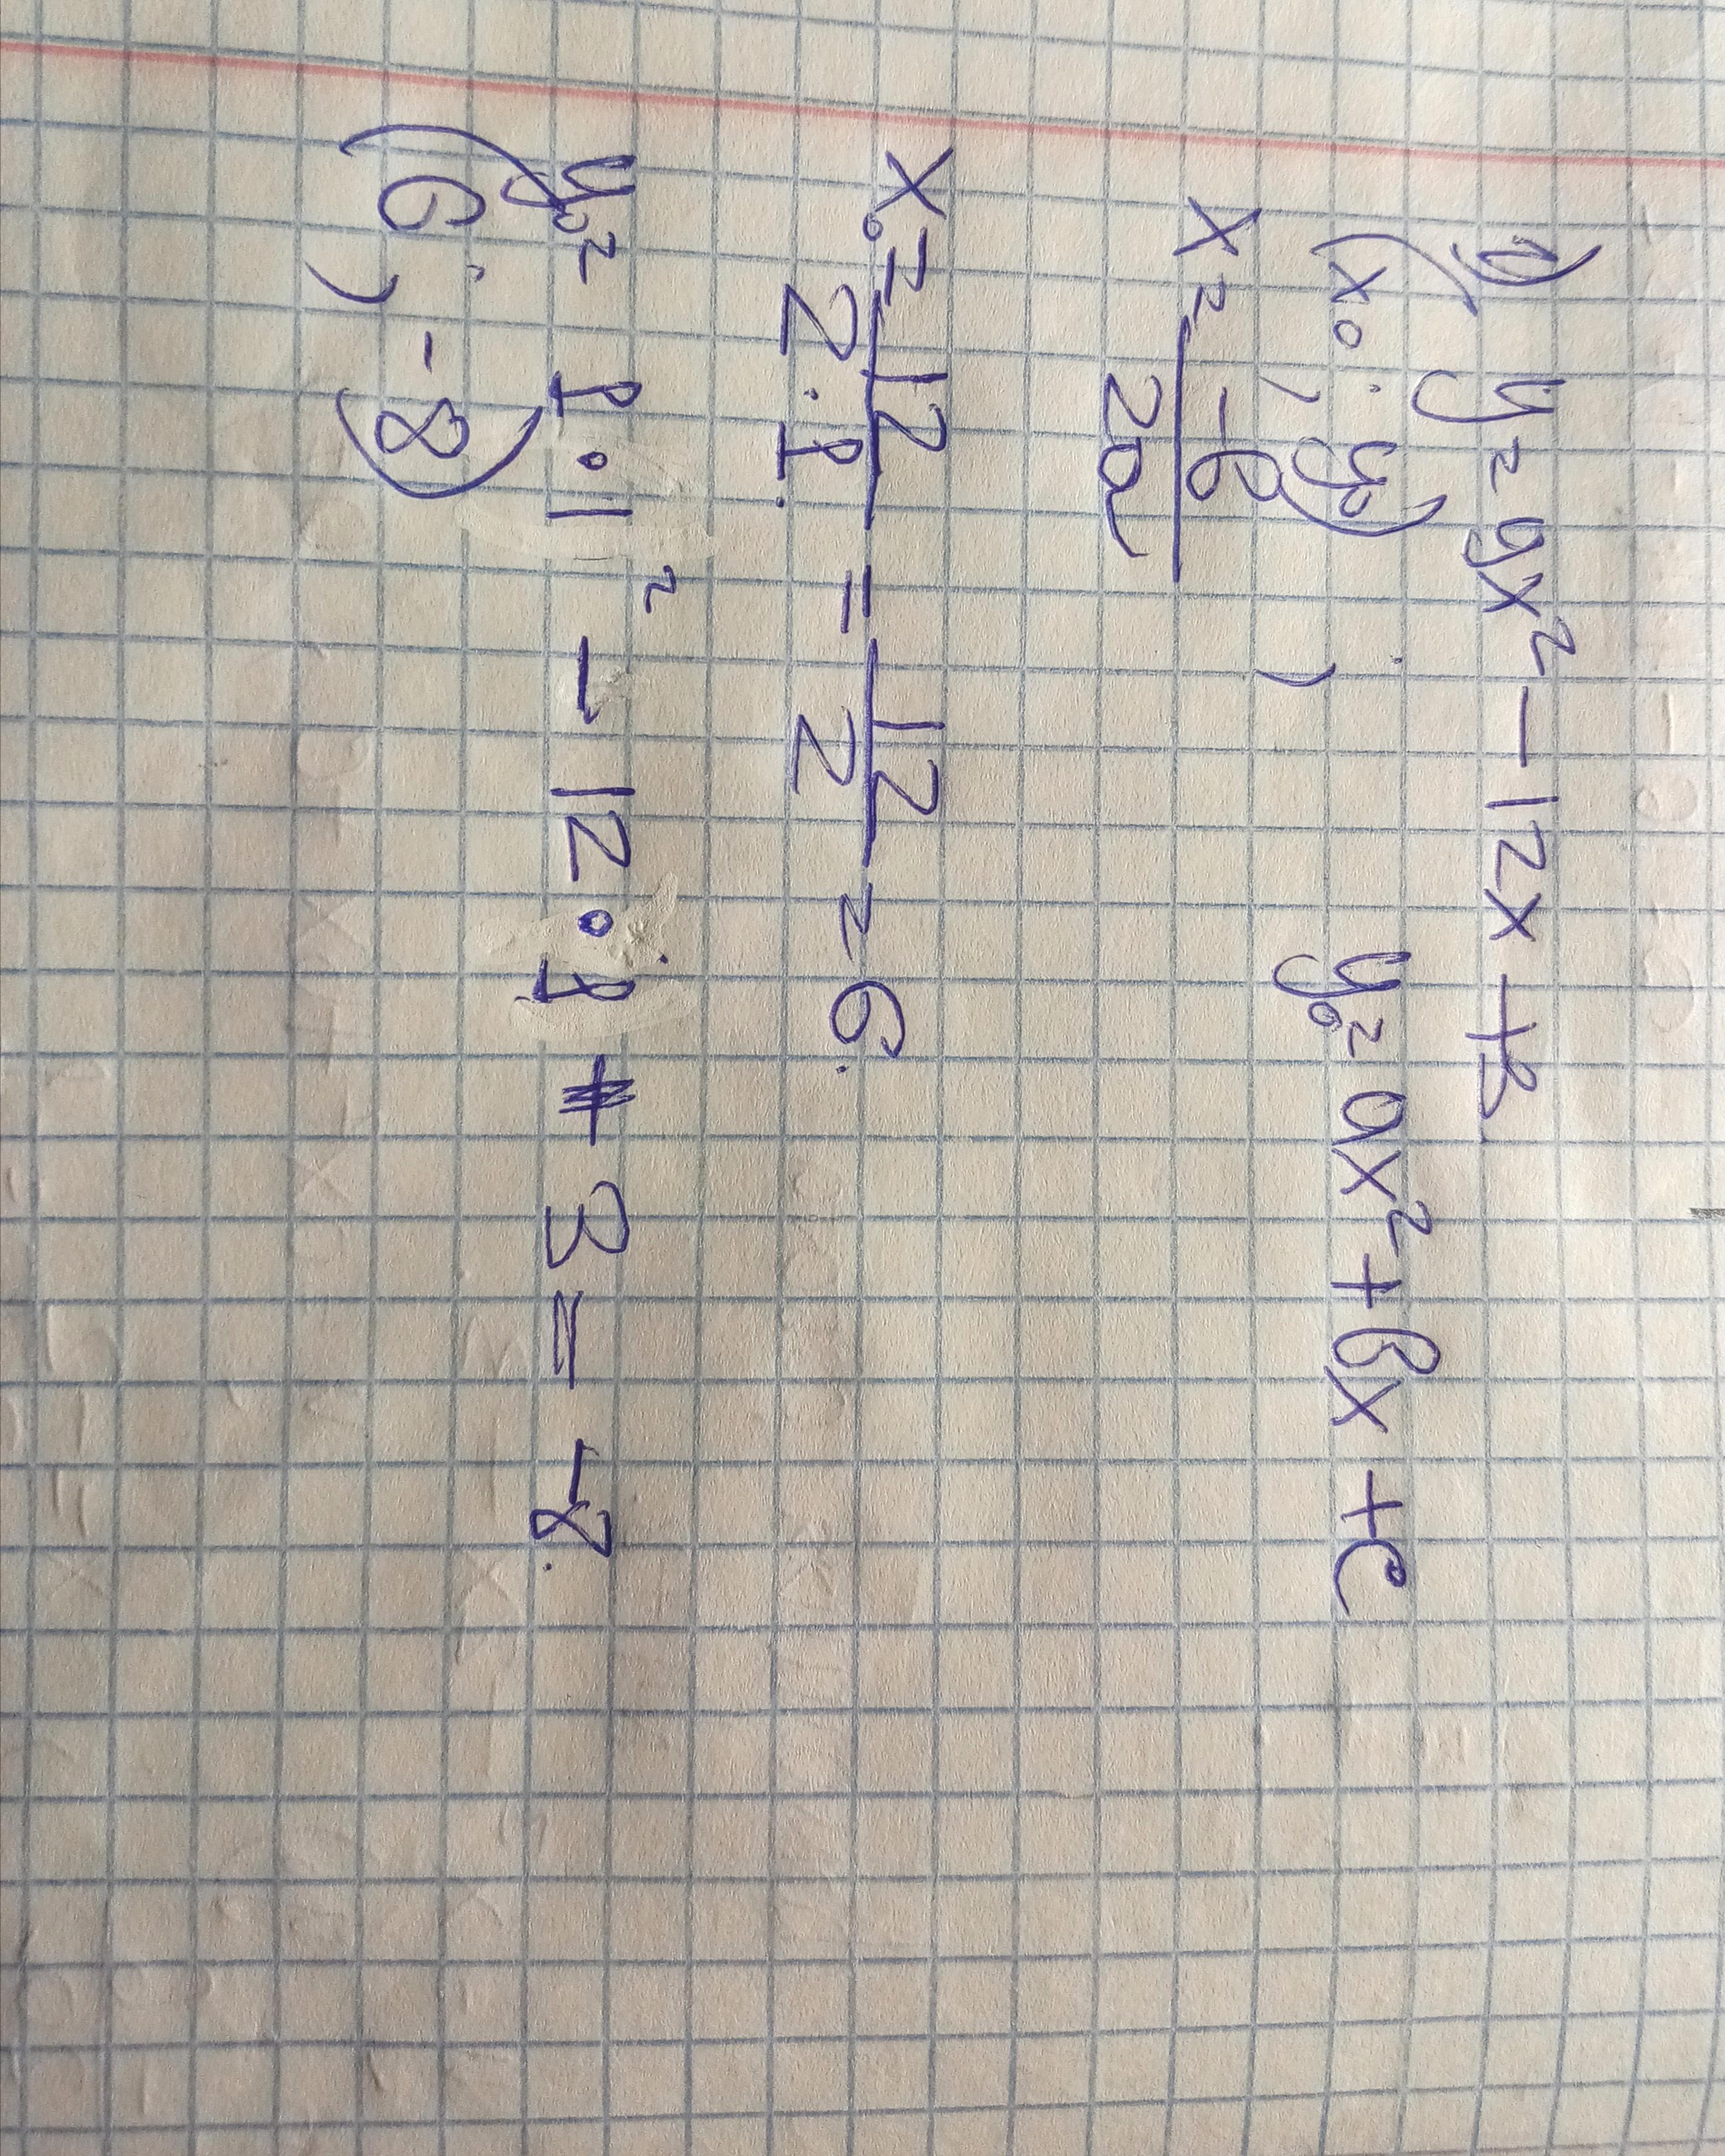 1) y = 9x² - 12x + 3
(x₀; y₀)    y₀ = ax² + bx + c
x = -b/2a
x₀ = 12/2·1 = 12/2 = 6.
y₀ = 1·1² - 12·1 + 3 = -8.
(6; -8)